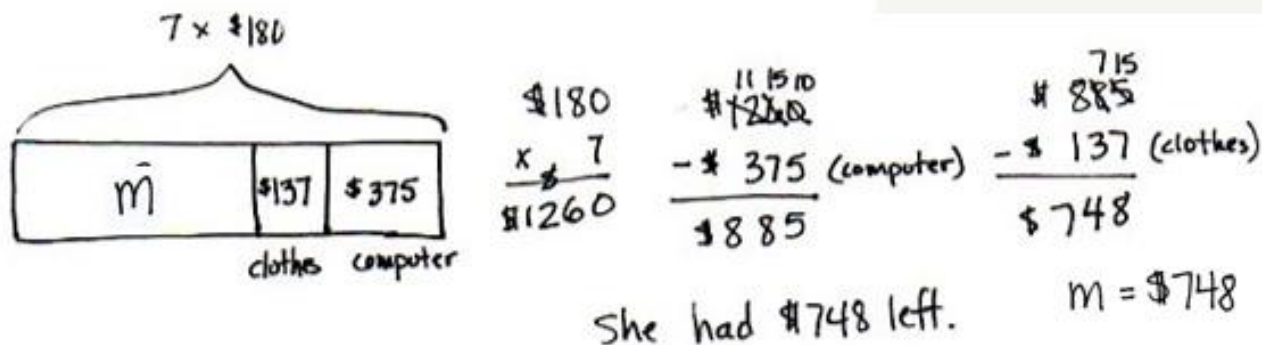 7 x $180
m
$137
$375
clothes computer
$180
x 7
$1260
11 15 10
$1260
- $ 375 (computer)
$885
7 15
$ 885
- $ 137 (clothes)
$ 748
m = $748
She had $748 left.